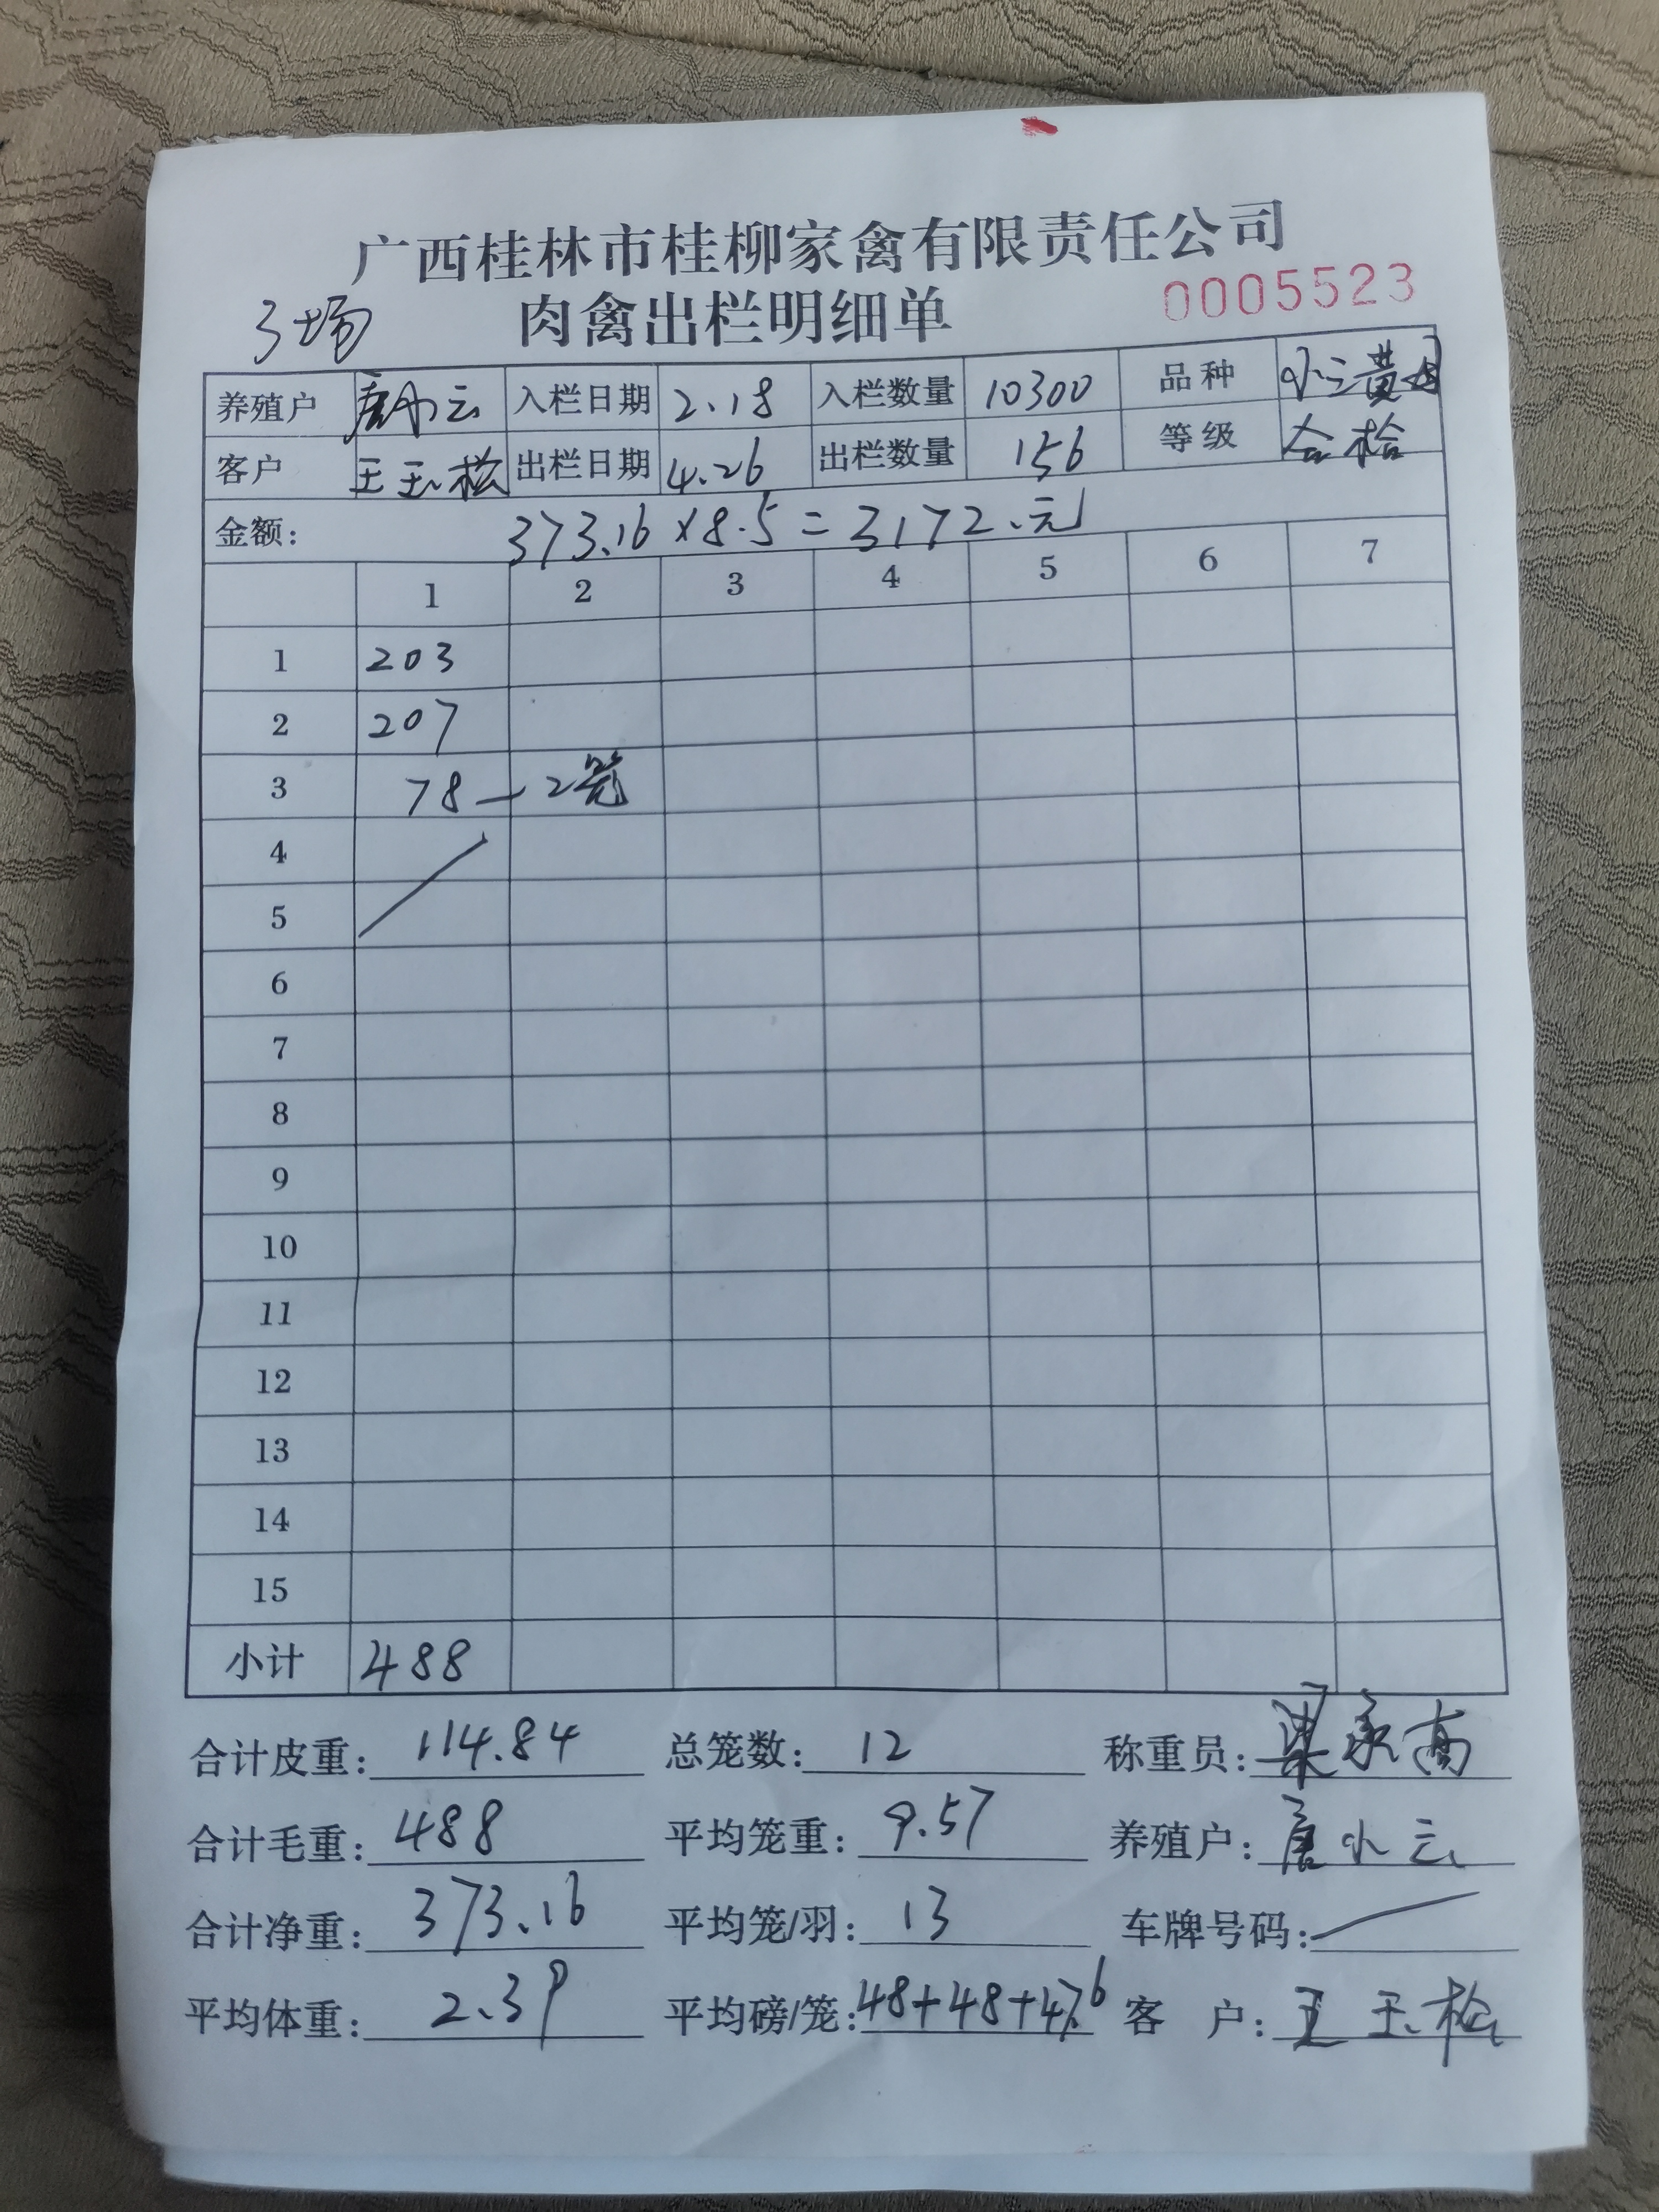 广西桂林市桂柳家禽有限责任公司
3场 肉禽出栏明细单 0005523
养殖户 唐小云 入栏日期 2.18 入栏数量 10300 品种 小三黄
客户 王玉松 出栏日期 4.26 出栏数量 156 等级 合格
金额: 373.16×8.5=3172.元
1 2 3 4 5 6 7
1 203
2 207
3 78—2笼
4
5
6
7
8
9
10
11
12
13
14
15
小计 488
合计皮重: 114.84 总笼数: 12 称重员: 梁永高
合计毛重: 488 平均笼重: 9.57 养殖户: 唐小云
合计净重: 373.16 平均笼/羽: 13 车牌号码:
平均体重: 2.39 平均磅/笼: 48+48+47.6 客 户: 王玉松